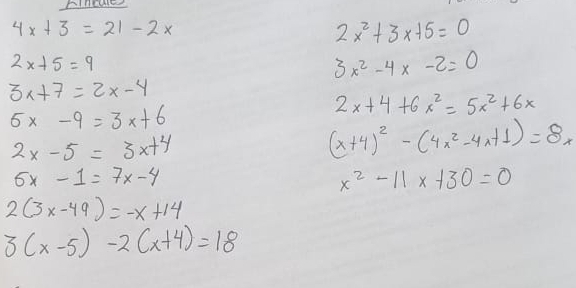 4x+3 = 21-2x
2x+5=9
3x+7=2x-4
5x -9=3x+6
2x-5 = 3x+4
5x -1=7x-4
2(3x-49)=-x+14
3(x-5) -2(x+4)=18
2x²+3x+5=0
3x²-4x-2=0
2x+4+6x²=5x²+6x
(x+4)² -(4x²-4x+1)=8x
x²-11x+30=0